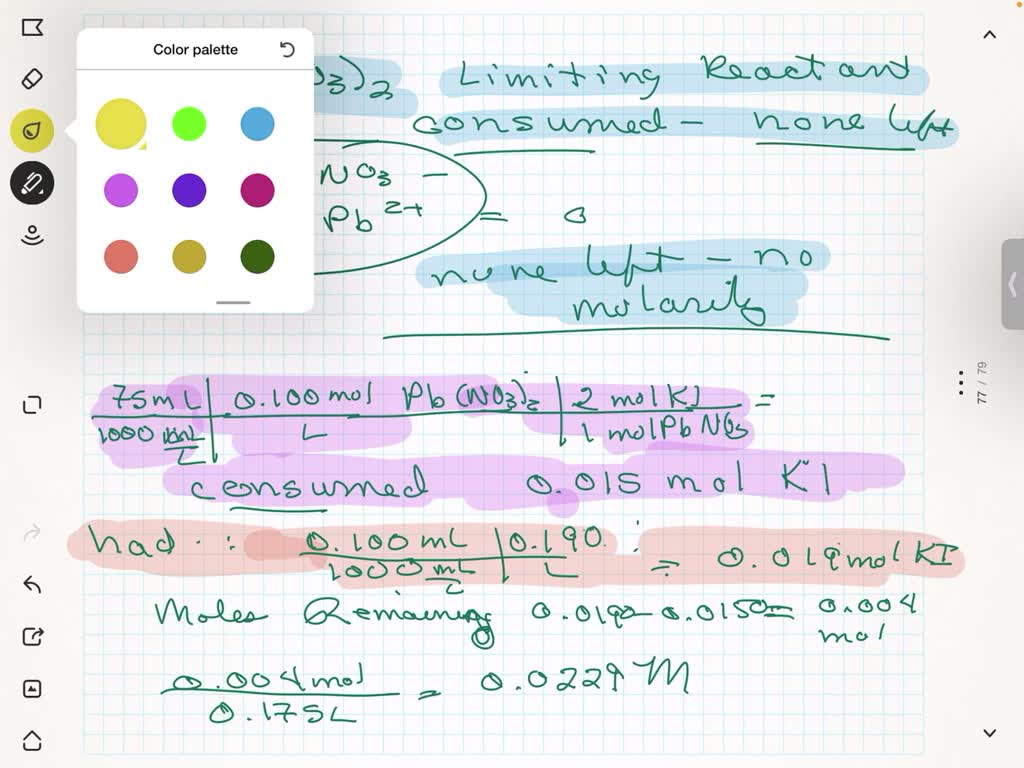 Color palette
O3)2 Limiting Reactant
consumed - none left
NO3 -
Pb 2+ = 0
none left - no
molarity
75mL | 0.100 mol Pb(NO3)2 | 2 mol KI =
1000 mL/L | L | 1 mol Pb NO3
consumed 0.015 mol KI
had : 0.100 mL | 0.190 = 0.019 mol KI
1000 mL/L | L
Moles Remaining 0.0190 - 0.0150 = 0.004
mol
0.004 mol = 0.0229 M
0.175L
77 / 79